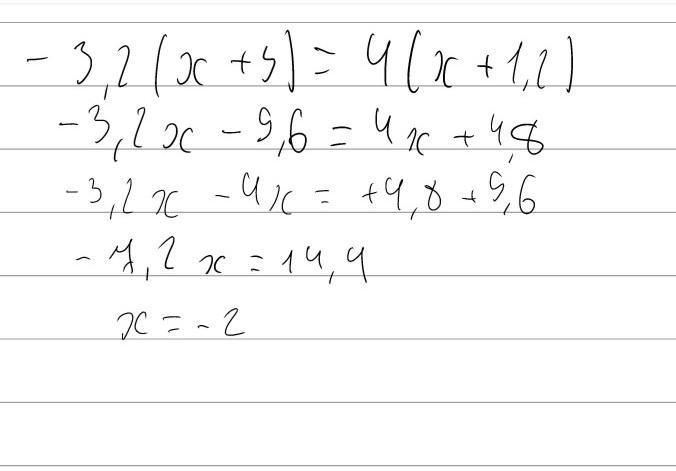 -3,2(x+3)=4(x+1,2)
-3,2x-9,6=4x+4,8
-3,2x-4x=+4,8+9,6
-7,2x=14,4
x=-2